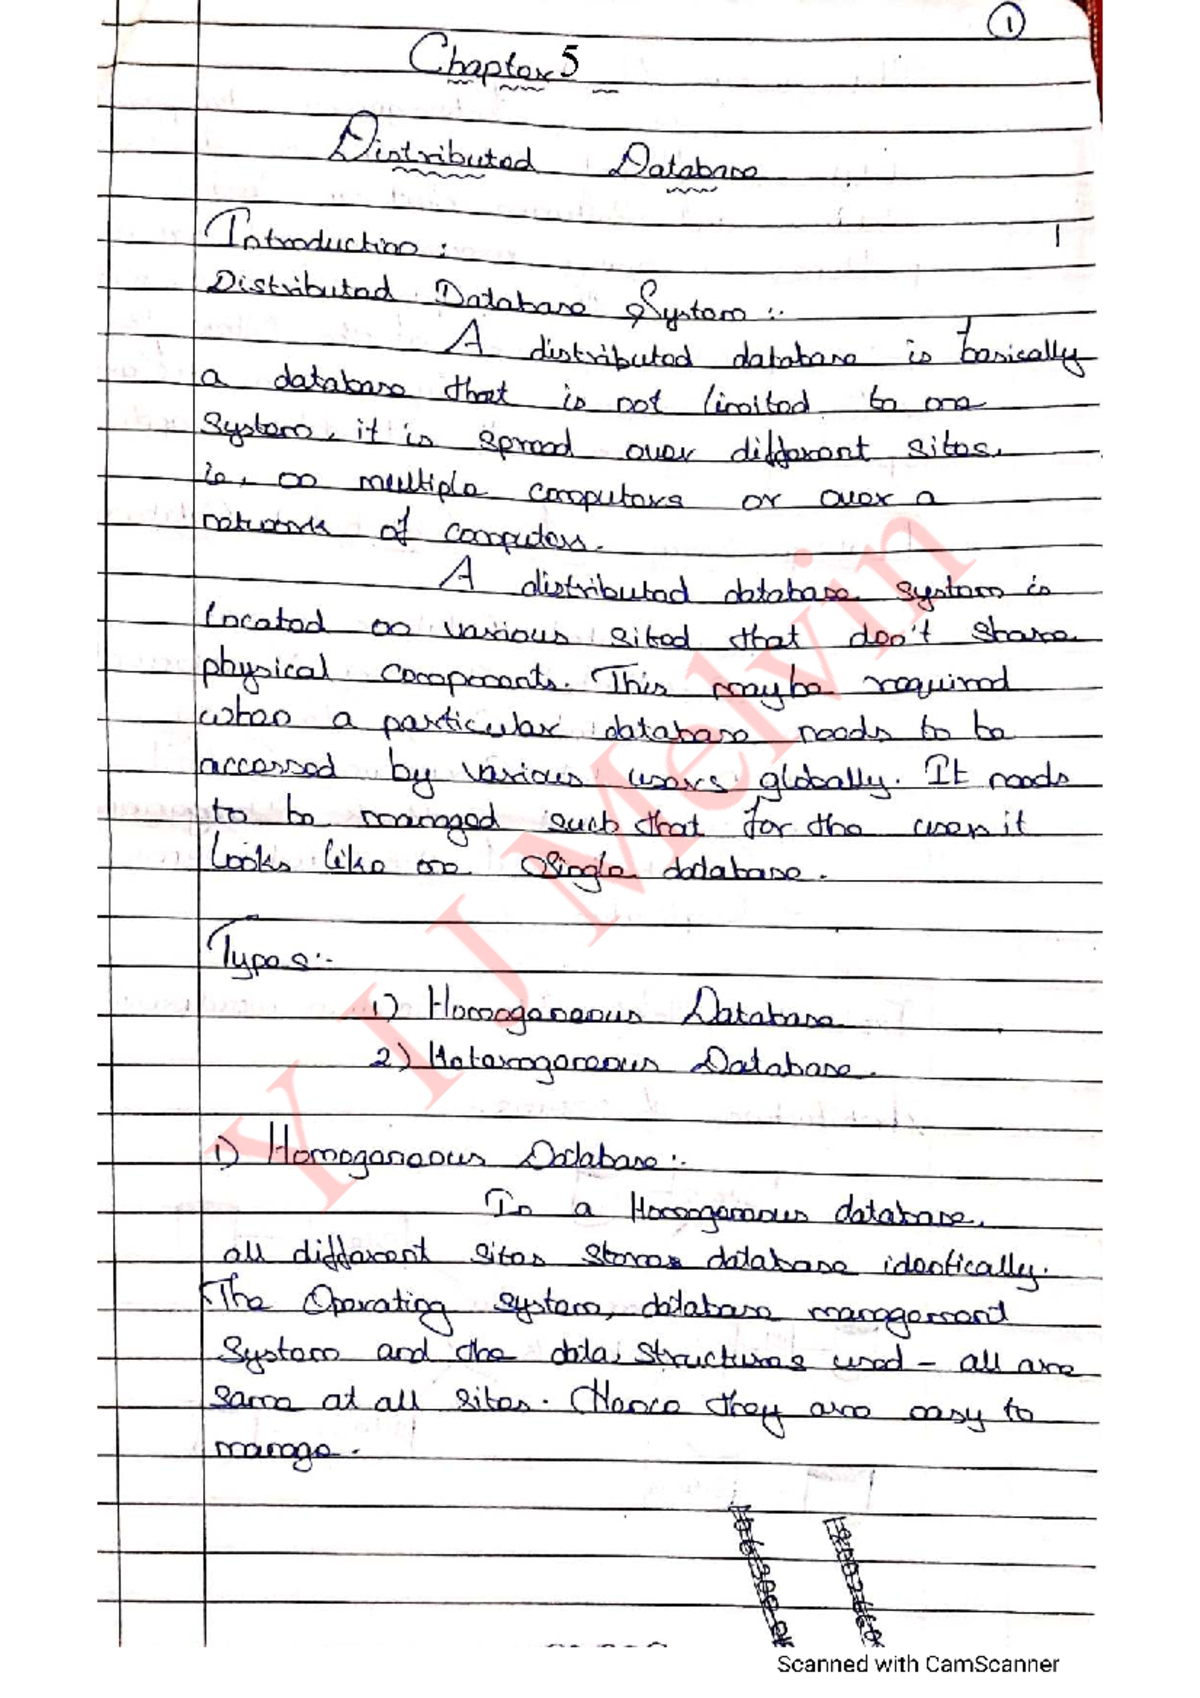 1
Chapter 5
Distributed Database
Introduction:
Distributed Database System:-
A distributed database is basically
a database that is not limited to one
system, it is spread over different sites,
ie, on multiple computers or over a
network of computers.
A distributed database system is
located on various sited that don't share
physical components. This maybe required
when a particular database needs to be
accessed by various users globally. It needs
to be managed such that for the users it
looks like one single database.
Types:-
1) Homogeneous Database
2) Heterogeneous Database.
1) Homogeneous Database:-
In a Homogeneous database,
all different sites stores database identically.
The Operating system, database management
system and the data structures used - all are
same at all sites. Hence they are easy to
manage.
Y I J Melvin
Scanned with CamScanner